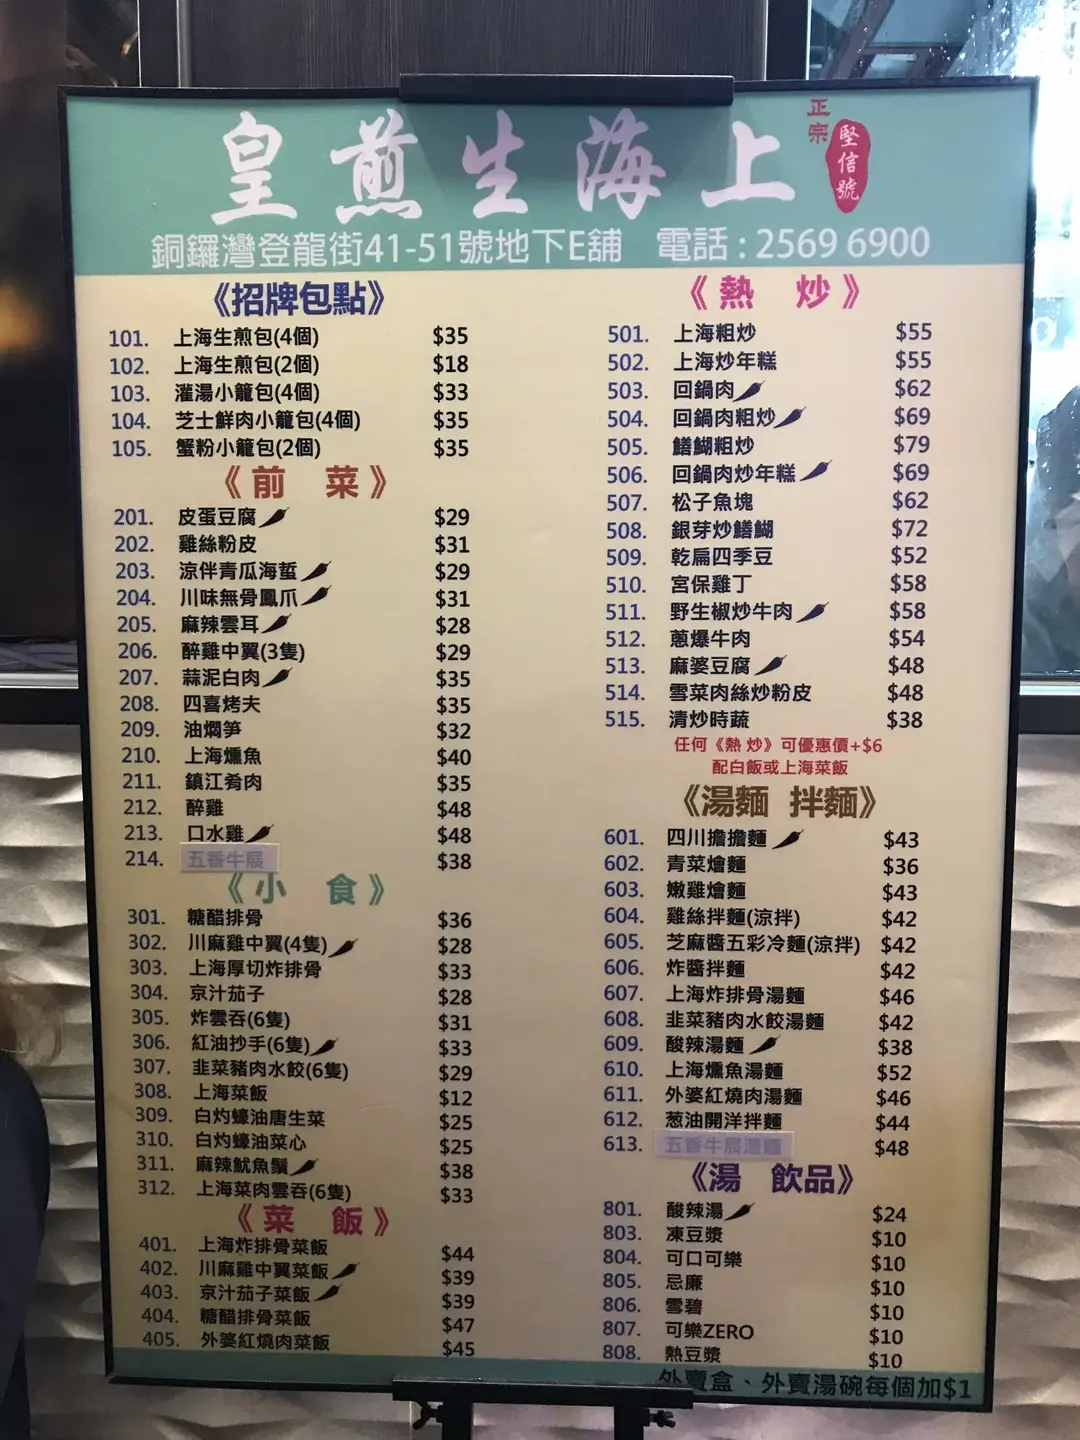 皇煎生海上
正宗
堅信號
銅鑼灣登龍街41-51號地下E舖 電話 : 2569 6900
《招牌包點》
101. 上海生煎包(4個) $35
102. 上海生煎包(2個) $18
103. 灌湯小籠包(4個) $33
104. 芝士鮮肉小籠包(4個) $35
105. 蟹粉小籠包(2個) $35
《前 菜》
201. 皮蛋豆腐 $29
202. 雞絲粉皮 $31
203. 涼伴青瓜海蜇 $29
204. 川味無骨鳳爪 $31
205. 麻辣雲耳 $28
206. 醉雞中翼(3隻) $29
207. 蒜泥白肉 $35
208. 四喜烤夫 $35
209. 油燜笋 $32
210. 上海燻魚 $40
211. 鎮江肴肉 $35
212. 醉雞 $48
213. 口水雞 $48
214. 五香牛展 $38
《小 食》
301. 糖醋排骨 $36
302. 川麻雞中翼(4隻) $28
303. 上海厚切炸排骨 $33
304. 京汁茄子 $28
305. 炸雲吞(6隻) $31
306. 紅油抄手(6隻) $33
307. 韭菜豬肉水餃(6隻) $29
308. 上海菜飯 $12
309. 白灼蠔油唐生菜 $25
310. 白灼蠔油菜心 $25
311. 麻辣魷魚鬚 $38
312. 上海菜肉雲吞(6隻) $33
《菜 飯》
401. 上海炸排骨菜飯 $44
402. 川麻雞中翼菜飯 $39
403. 京汁茄子菜飯 $39
404. 糖醋排骨菜飯 $47
405. 外婆紅燒肉菜飯 $45
《熱 炒》
501. 上海粗炒 $55
502. 上海炒年糕 $55
503. 回鍋肉 $62
504. 回鍋肉粗炒 $69
505. 鱔餬粗炒 $79
506. 回鍋肉炒年糕 $69
507. 松子魚塊 $62
508. 銀芽炒鱔餬 $72
509. 乾扁四季豆 $52
510. 宮保雞丁 $58
511. 野生椒炒牛肉 $58
512. 蔥爆牛肉 $54
513. 麻婆豆腐 $48
514. 雪菜肉絲炒粉皮 $48
515. 清炒時蔬 $38
任何《熱 炒》可優惠價+$6
配白飯或上海菜飯
《湯麵 拌麵》
601. 四川擔擔麵 $43
602. 青菜燴麵 $36
603. 嫩雞燴麵 $43
604. 雞絲拌麵(涼拌) $42
605. 芝麻醬五彩冷麵(涼拌) $42
606. 炸醬拌麵 $42
607. 上海炸排骨湯麵 $46
608. 韭菜豬肉水餃湯麵 $42
609. 酸辣湯麵 $38
610. 上海燻魚湯麵 $52
611. 外婆紅燒肉湯麵 $46
612. 葱油開洋拌麵 $44
613. 五香牛展湯麵 $48
《湯 飲品》
801. 酸辣湯 $24
803. 凍豆漿 $10
804. 可口可樂 $10
805. 忌廉 $10
806. 雪碧 $10
807. 可樂ZERO $10
808. 熱豆漿 $10
外賣盒、外賣湯碗每個加$1